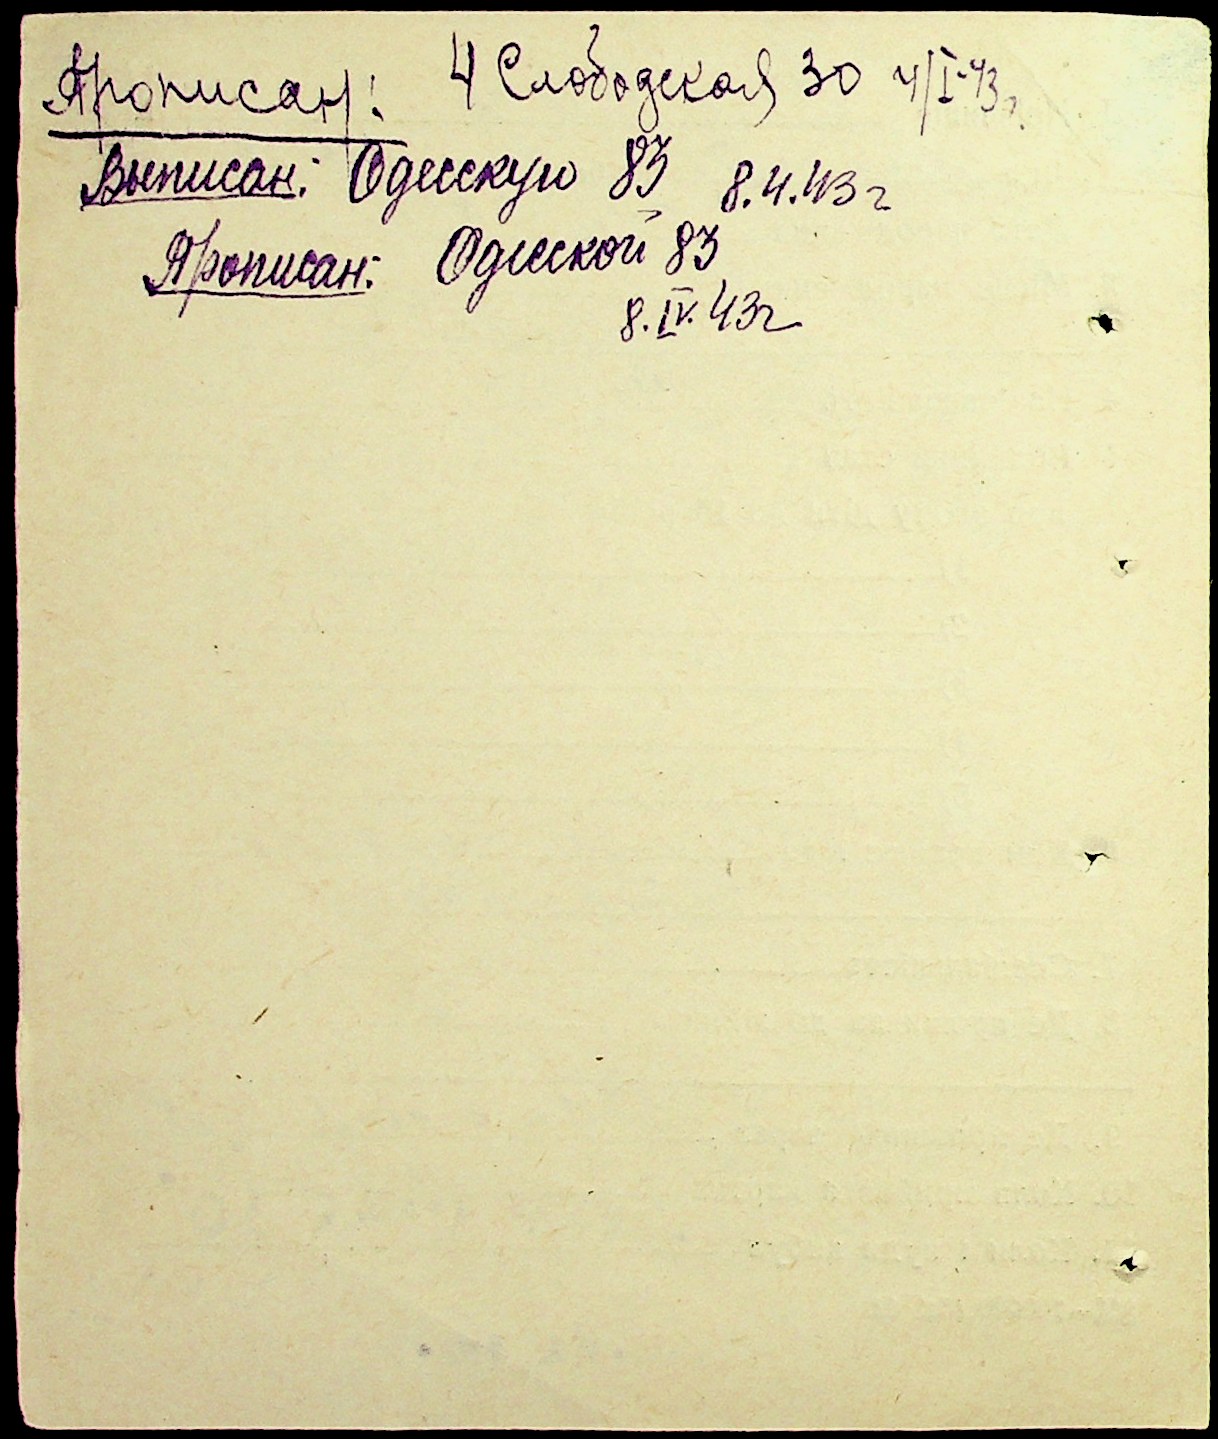 Прописан: 4 Слободская 30 4/I-43г.
Выписан: Одесскую 83 8.4.43г
Прописан: Одесской 83
8.IV.43г